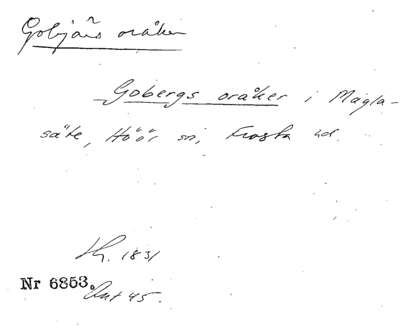 Gobjärs oråker
Gobergs oråker i Magla-
säte, Höör sn, Frosta hd.
Lh. 1831
Nr 6853. Ant 45.